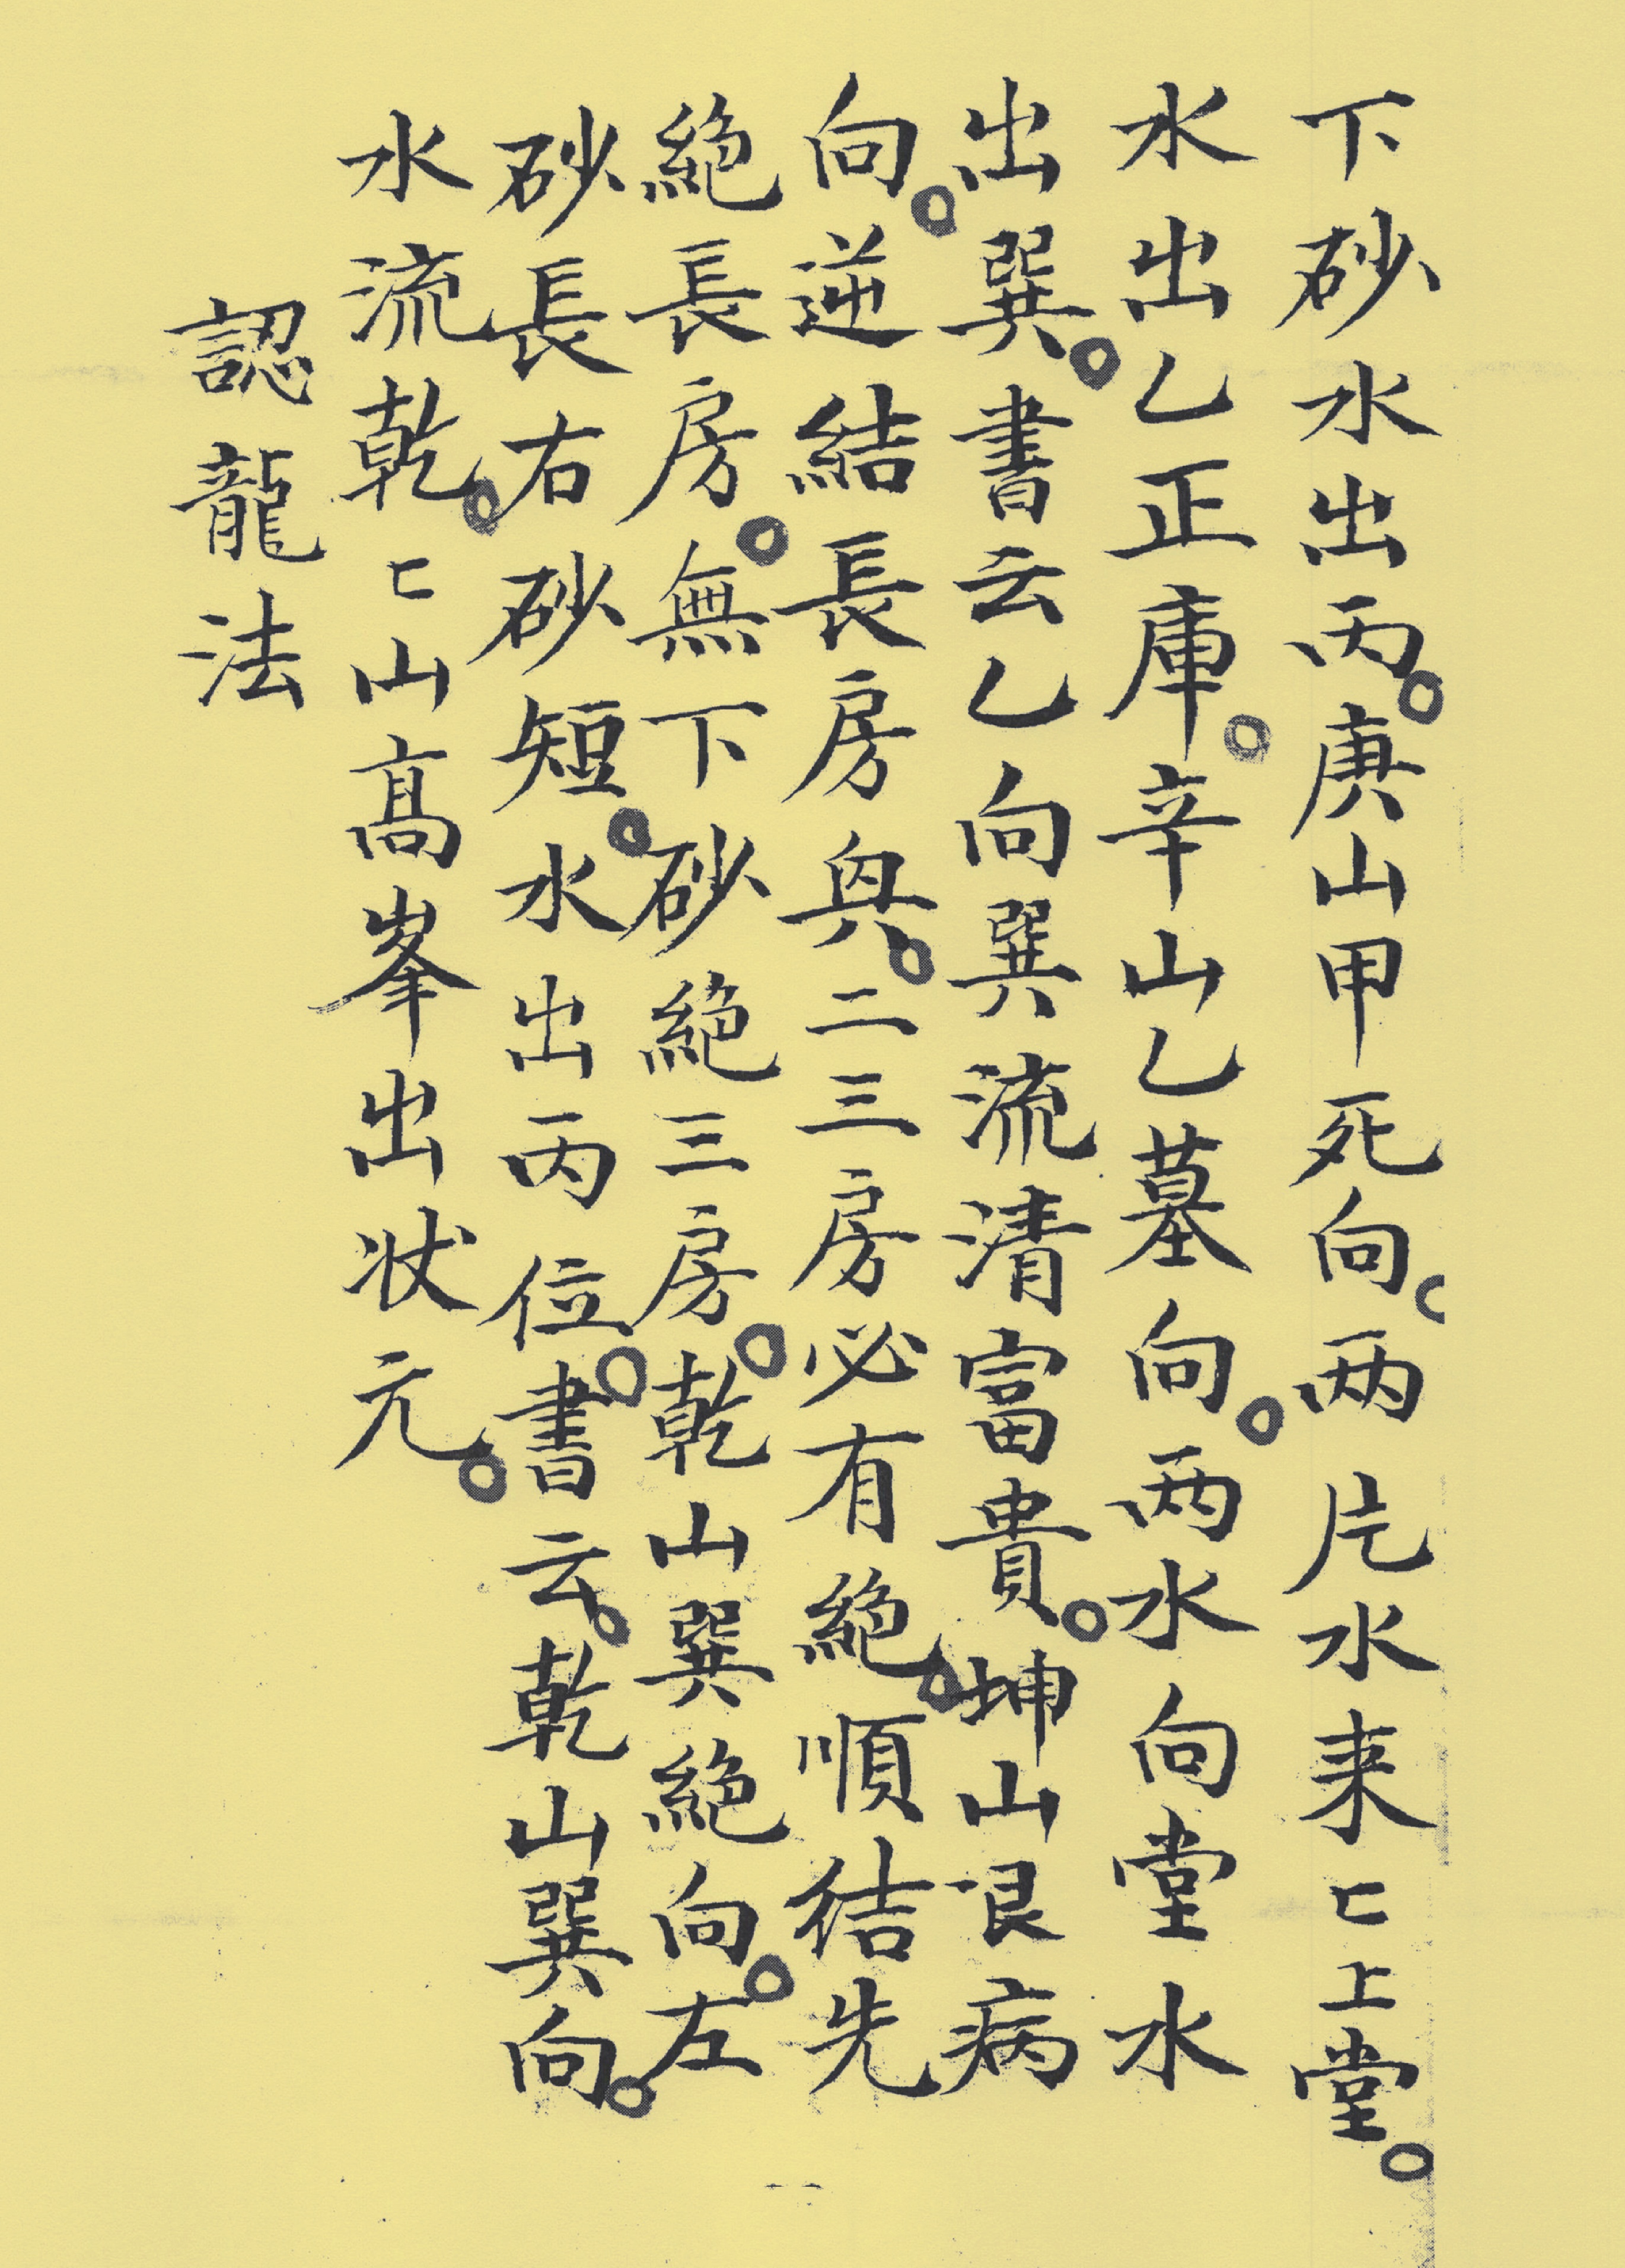 下砂水出丙。庚山甲死向。两片水来匕上堂。
水出乙正庫。辛山乙墓向。两水向堂水
出巽。書云乙向巽流清富貴。坤山艮病
向。逆結長房興。二三房必有絕。順结先
絕長房。無下砂絕三房。乾山巽絕向。左
砂長右砂短。水出丙位。書云。乾山巽向。
水流乾。匕山高峯出状元。
認龍法